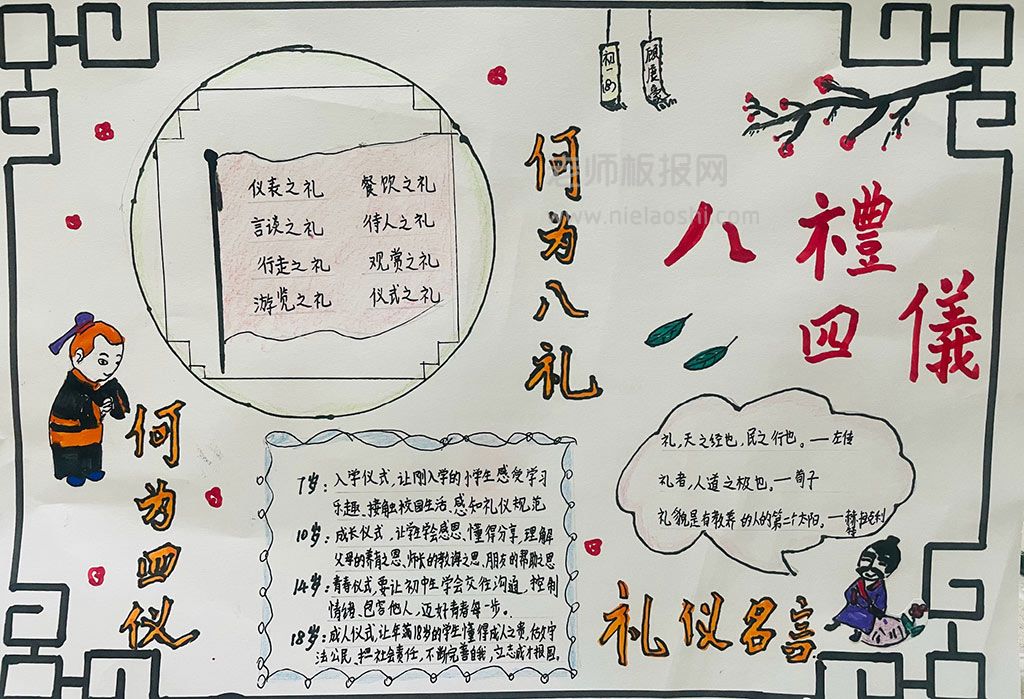 初一(8)
老师板报网
www.nielaoshi.com
八禮四儀
何为八礼
仪表之礼 餐饮之礼
言谈之礼 待人之礼
行走之礼 观赏之礼
游览之礼 仪式之礼
何为四仪
7岁：入学仪式，让刚入学的小学生感受学习
乐趣、接触校园生活、感知礼仪规范
10岁：成长仪式，让学生学会感恩、懂得分享，理解
父母的养育之恩、师长的教诲之恩、朋友的帮助之恩
14岁：青春仪式，要让初中生学会交往沟通，控制
情绪、包容他人，迈好青春每一步。
18岁：成人仪式，让年满18岁的学生懂得成人之责，做守
法公民，担社会责任，不断完善自我，立志成才报国。
礼，天之经也，民之行也。——左传
礼者，人道之极也。——荀子
礼貌是有教养的人的第二个太阳。——赫拉克利特
礼仪名言